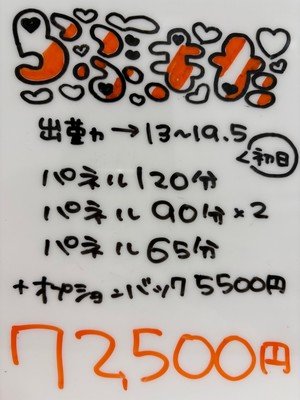 出勤 → 13〜19.5
初日
パネル 120分
パネル 90分×2
パネル 65分
+ オプションバック 5500円
72,500円